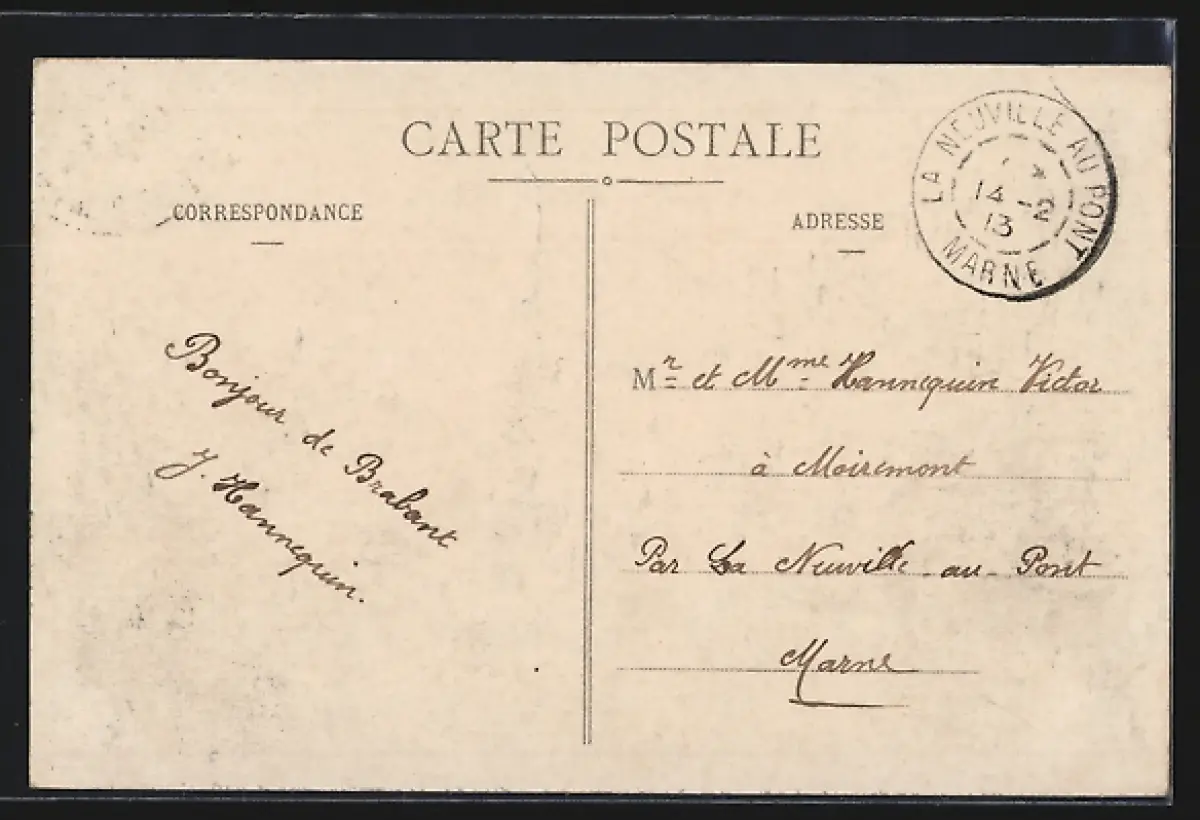 CARTE POSTALE
CORRESPONDANCE
ADRESSE
LA NEUVILLE AU PONT
14 -2
13
MARNE
Bonjour de Brabant
J. Hannequin.
Mr et Mme Hannequin Victor
à Moiremont
Par La Neuville-au-Pont
Marne